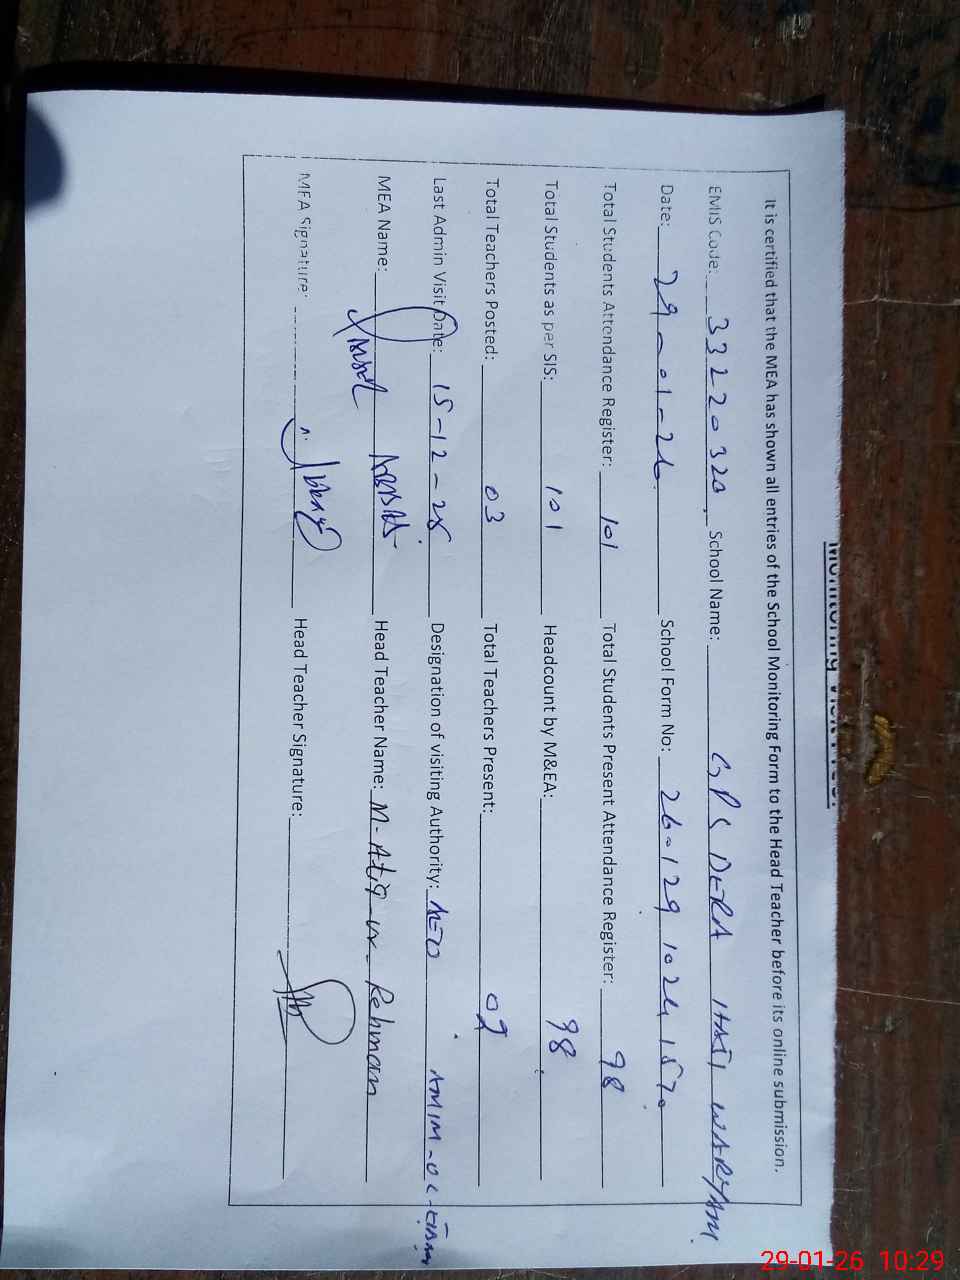 It is certified that the MEA has shown all entries of the School Monitoring Form to the Head Teacher before its online submission.
EMIS Code: 33220320 School Name: GPS DERA HAJI WARYAM
Date: 29-01-26 School Form No: 26012910241570
Total Students Attendance Register: 101 Total Students Present Attendance Register: 98
Total Students as per SIS: 101 Headcount by M&EA: 98
Total Teachers Posted: 03 Total Teachers Present: 02
Last Admin Visit Date: 15-12-25 Designation of visiting Authority: AEO
MEA Name: Head Teacher Name: M-Atiq-ur-Rehman
MEA Signature: Head Teacher Signature:
29-01-26 10:29